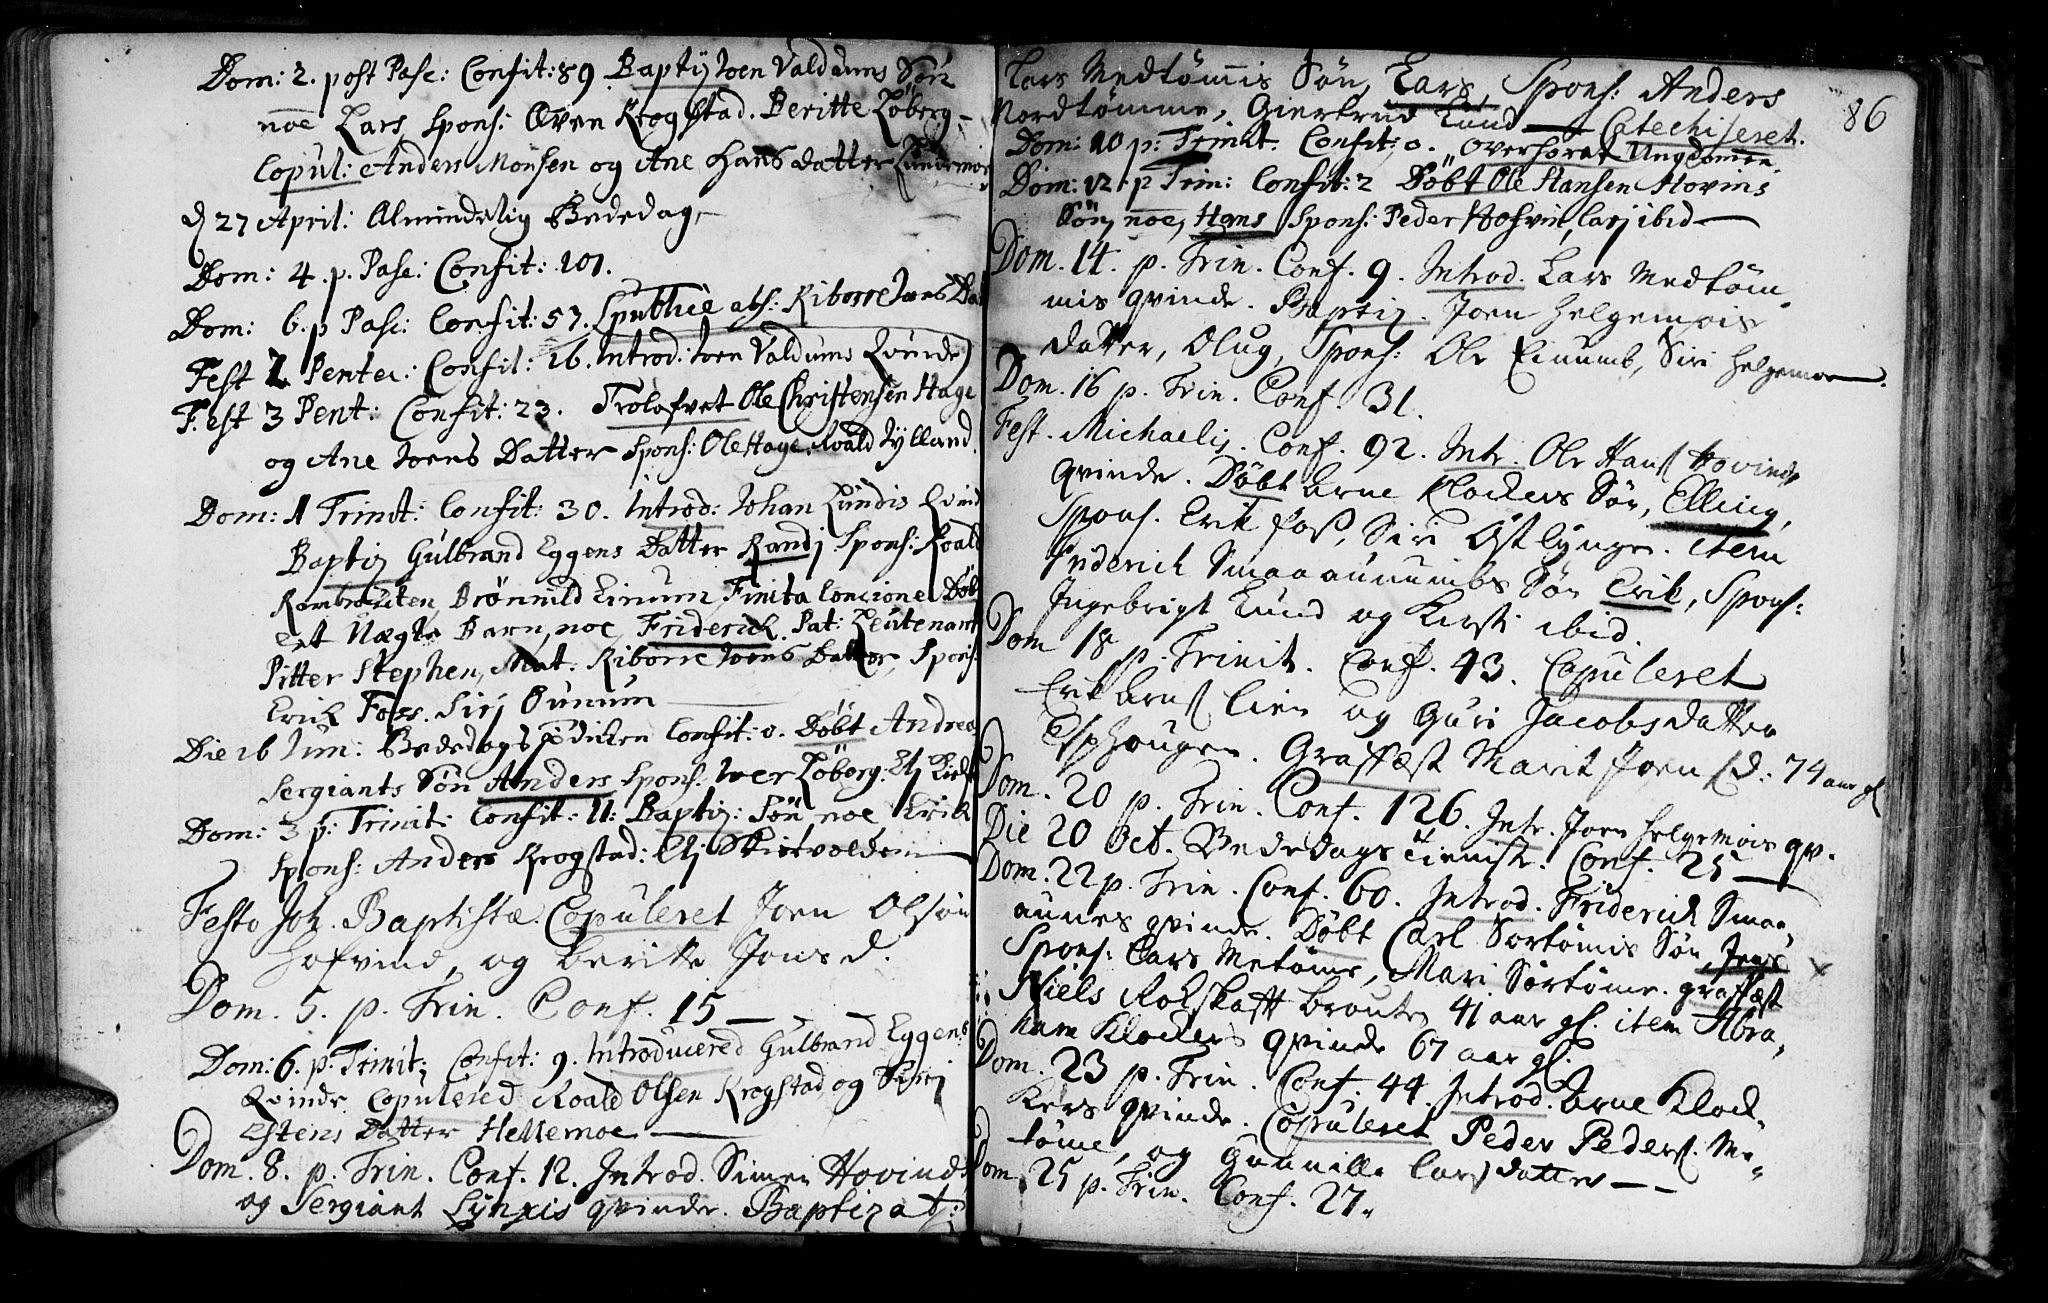 Dom: 2. post Pasc: Confit: 89. Baptiz Joen Valdums Søn
noē Lars, Spons: Even Krogstad. Beritte Løberg –
Copul: Anders Monsen og Ane Hans datter
d 27 April: Almindelig Bededag
Dom: 4. p. Pasc: Confit: 101.
Dom: 6. p Pasc: Confit: 57. publicè abs: Riborre Joens Dat
Fest 2 Pentec: Confit: 16. Introd: Joen Valdums Qvinde
Fest 3 Pent: Confit: 23. Trolofvet Ole Christensen Hage
og Ane Joens Datter Spons: Ole Hage, Roald Jylland
Dom: 1 Trinit: Confit: 30. Introd: Johan Lundis Qvind
Baptiz Gulbrand Eggens Datter Randj Spons: Roald
Rambraaten, Brønnild Einum, Finita Concione Døbt
eet Uægte Barn, noe, Friderich. Pat: Leutenant
Pitter Stephen, Mat: Riborre Joens Datter, Spons:
Erich Foss. Sirj Ounum
Die 16 Jun: Bededags prædicken Confit: 0. Døbt Andreas
Sergiants Søn Anders Spons: Iver Løberg: Elj
Dom: 3 p: Trinit: Confit: 11: Baptiz: Søn noe Erick
Spons: Anders Krogstad: Elj
Festo Joh. Baptistæ. Copuleret Joen Olsøn
Hofvind, og Beritte Jons d.
Dom. 5. p. Trin. Conf. 15 —
Dom: 6. p. Trinit: Confit: 9. Introducered Gulbrand Eggens
Qvinde Copulered Roald Olsen Krogstad og Sirj
Estens Datter Hellemoe
Dom. 8. p. Trin. Conf. 12. Introd. Simen Hovinds
og Sergiant Lynxis qvinde. Baptizat:
86
Lars Medtømmis Søn, Lars, Spons: Anders
Nordtømme, Giertrud Lund — Catechiseret.
Dom: 10 p: Trinit. Confit: 0. Overhørat Ungdomen.
Dom: 12 p Trin: Confit: 2 Døbt Ole Hansen Hovins
Søn, noe, Hans Spons: Peder Hofvin, Lars ibid —
Dom. 14. p. Trin. Conf. 9. Introd. Lars Medtøm-
mis qvinde. Baptiz. Joen Helgemois
datter, Olug, Spons: Ole Einumb, Siri Helgemoe.
Dom. 16 p. Trin. Conf. 31.
Fest. Michaelis. Conf. 92. Intr. Ole Hans Hovinds
qvinde. Døbt Arne Klockers Søn, Elling,
Spons. Erik Foss, Siri Østlynge. item
Friderich Smaaaunumbs Søn Erik, Spons:
Ingebrigt Lund og Kirsti ibid.
Dom 18 p. Trinit. Conf. 43. Copuleret
Erik Arns Lien og Guri Jacobsdatter
Esphougen. Graffæst Marit Joens d: 74 aar gl
Dom. 20 p. Trin. Conf. 126. Intr. Joen Helgemois qv.
Die 20 Oct. Bededags tieniste. Conf. 25 —
Dom. 22 p. Trin. Conf. 60. Introd. Friderich Smaa-
aunes qvinde. Døbt Carl Sørtømis Søn, Jens
Spons: Lars Metømme, Mari Sørtømme. graffæst
Niels Rolskaft Brauten 41 aar gl. item Abra-
ham Klockers qvinde 67 aar gl.
Dom. 23 p. Trin. Conf. 44. Introd. Arne Kloc-
kers qvinde. Copuleret Peder Peders. Me-
tømme, og Gunnille Larsdatter —
Dom. 25 p. Trin. Conf. 27.